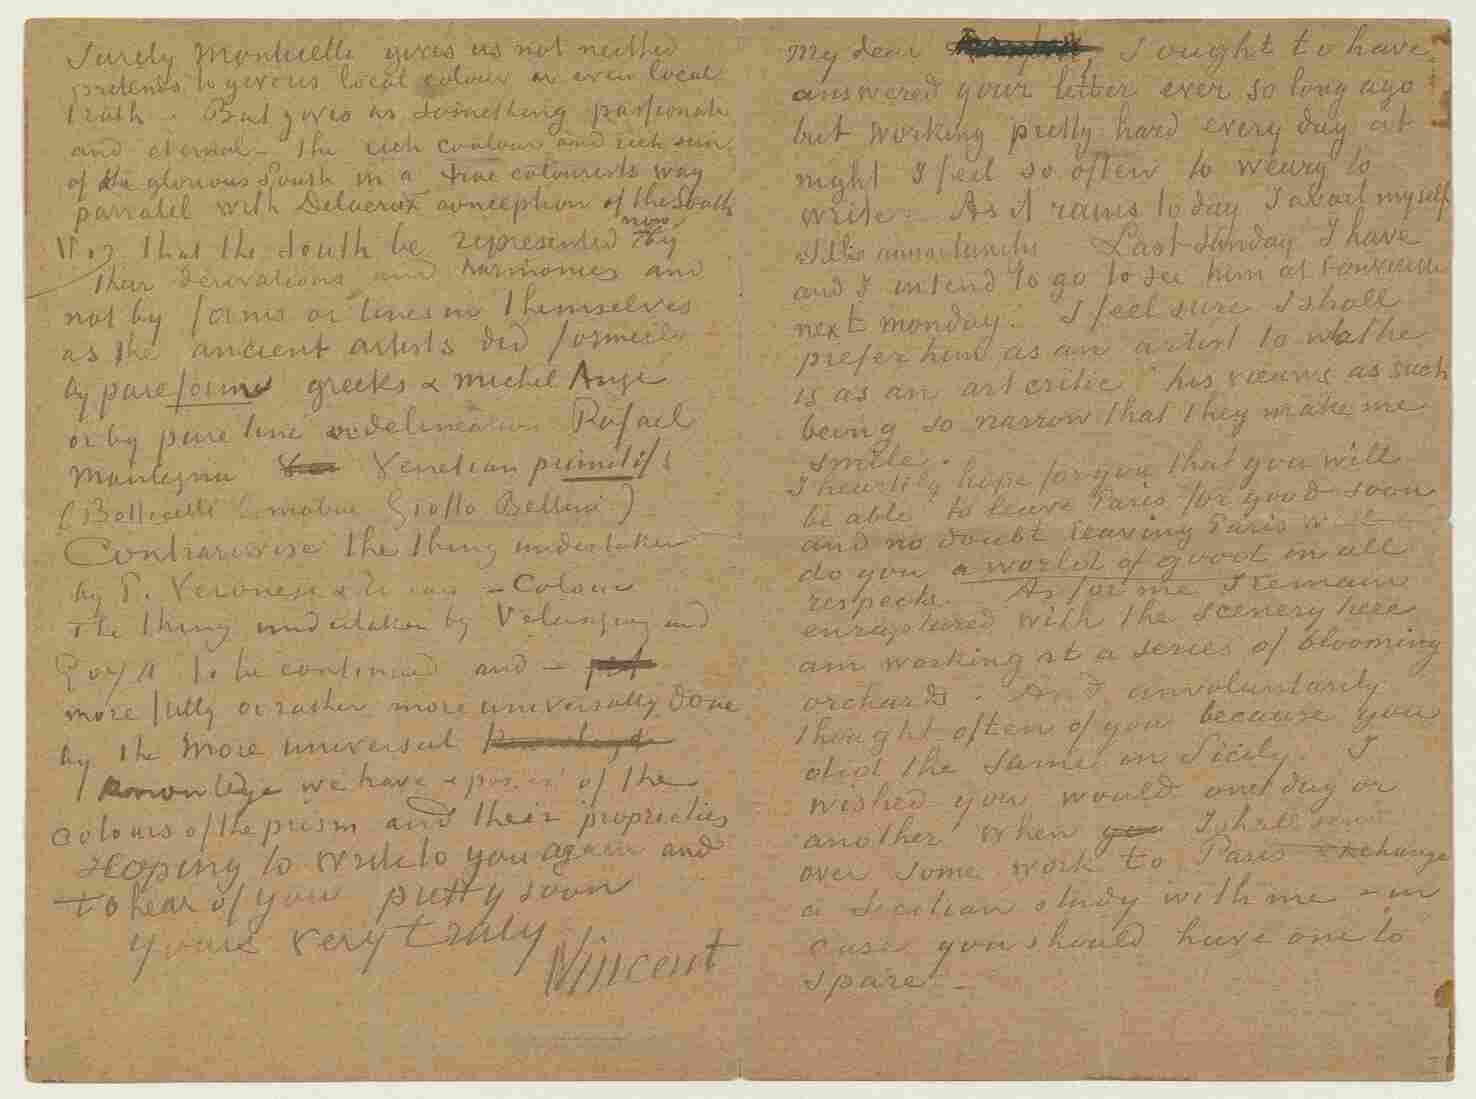 Surely Monticelli gives us not neither
pretends to give us local colour or even local
truth. But gives us something passionate
and eternal – the rich coulour and rich sun
of the glorious South in a true colourists way
parralel with Delacroix conception of the South
Viz that the South be represented now by
their derivations and harmonies and
not by forms or lines in themselves
as the ancient artists did formerly
by pure form greeks & Michel Ange
or by pure line or delineation Rafael
Mantegna Venetian primitifs
(Botticelli Cimabue Giotto Bellini)
Contrariwise the thing undertaken
by P. Veronese & Titian – Colour
The thing undertaken by Velasquez and
Goya to be continued and –
more fully or rather more universally done
by the more universal
knowledge we have & posess of the
colours of the prism and their proprieties
Hoping to write to you again and
to hear of you pretty soon
yours very truly
Vincent
My dear , I ought to have
answered your letter ever so long ago
but working pretty hard every day at
night I feel so often to weary to
write. As it rains to day I
Last Sunday I have
and I intend to go to see him at
next monday. I feel sure I shall
prefer him as an artist to
is as an art critic his views as such
being so narrow that they make me
smile.
I heartily hope for you that you will
be able to leave Paris for good soon
and no doubt leaving Paris will
do you a world of good in all
respects. As for me I remain
enraptured with the scenery here
am working at a series of blooming
orchards. And unvoluntarily
thought often of you because you
did the same in Sicily. I
wished you would one day or
another when I shall send
over some work to Paris exchange
a Sicilian study with me – in
case you should have one to
spare –